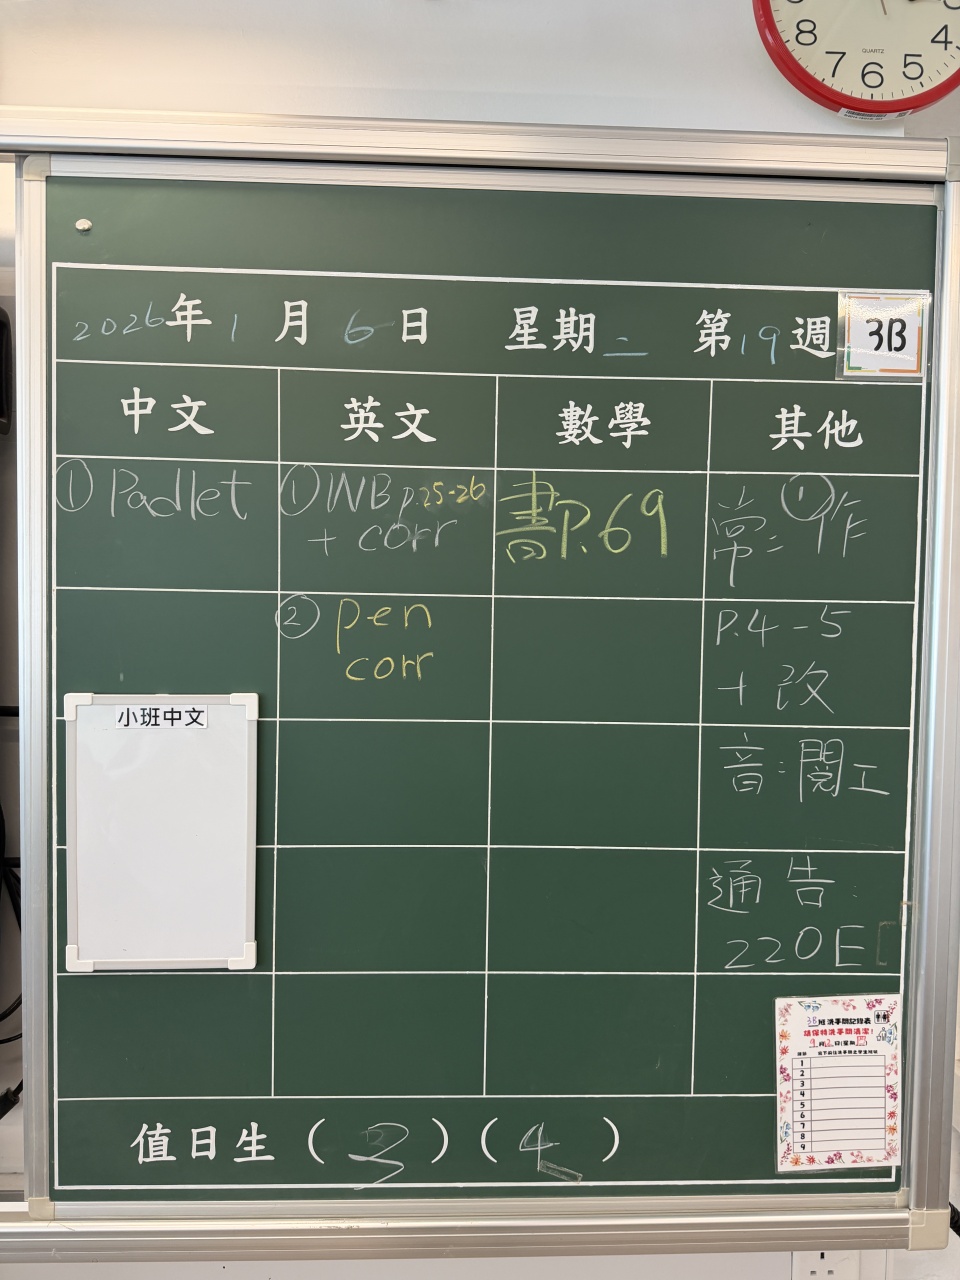 8 7 6 5 4
QUARTZ
2026年1月6日 星期二 第19週 3B
中文 英文 數學 其他
① Padlet
① WB p.25-26
+ corr
書P.69
常: ①作
② pen
corr
P.4-5
+ 改
小班中文
音: 閱工
通告:
220E
3B班洗手間記錄表
請保持洗手間清潔!
1
2
3
4
5
6
7
8
9
值日生(3)(4)